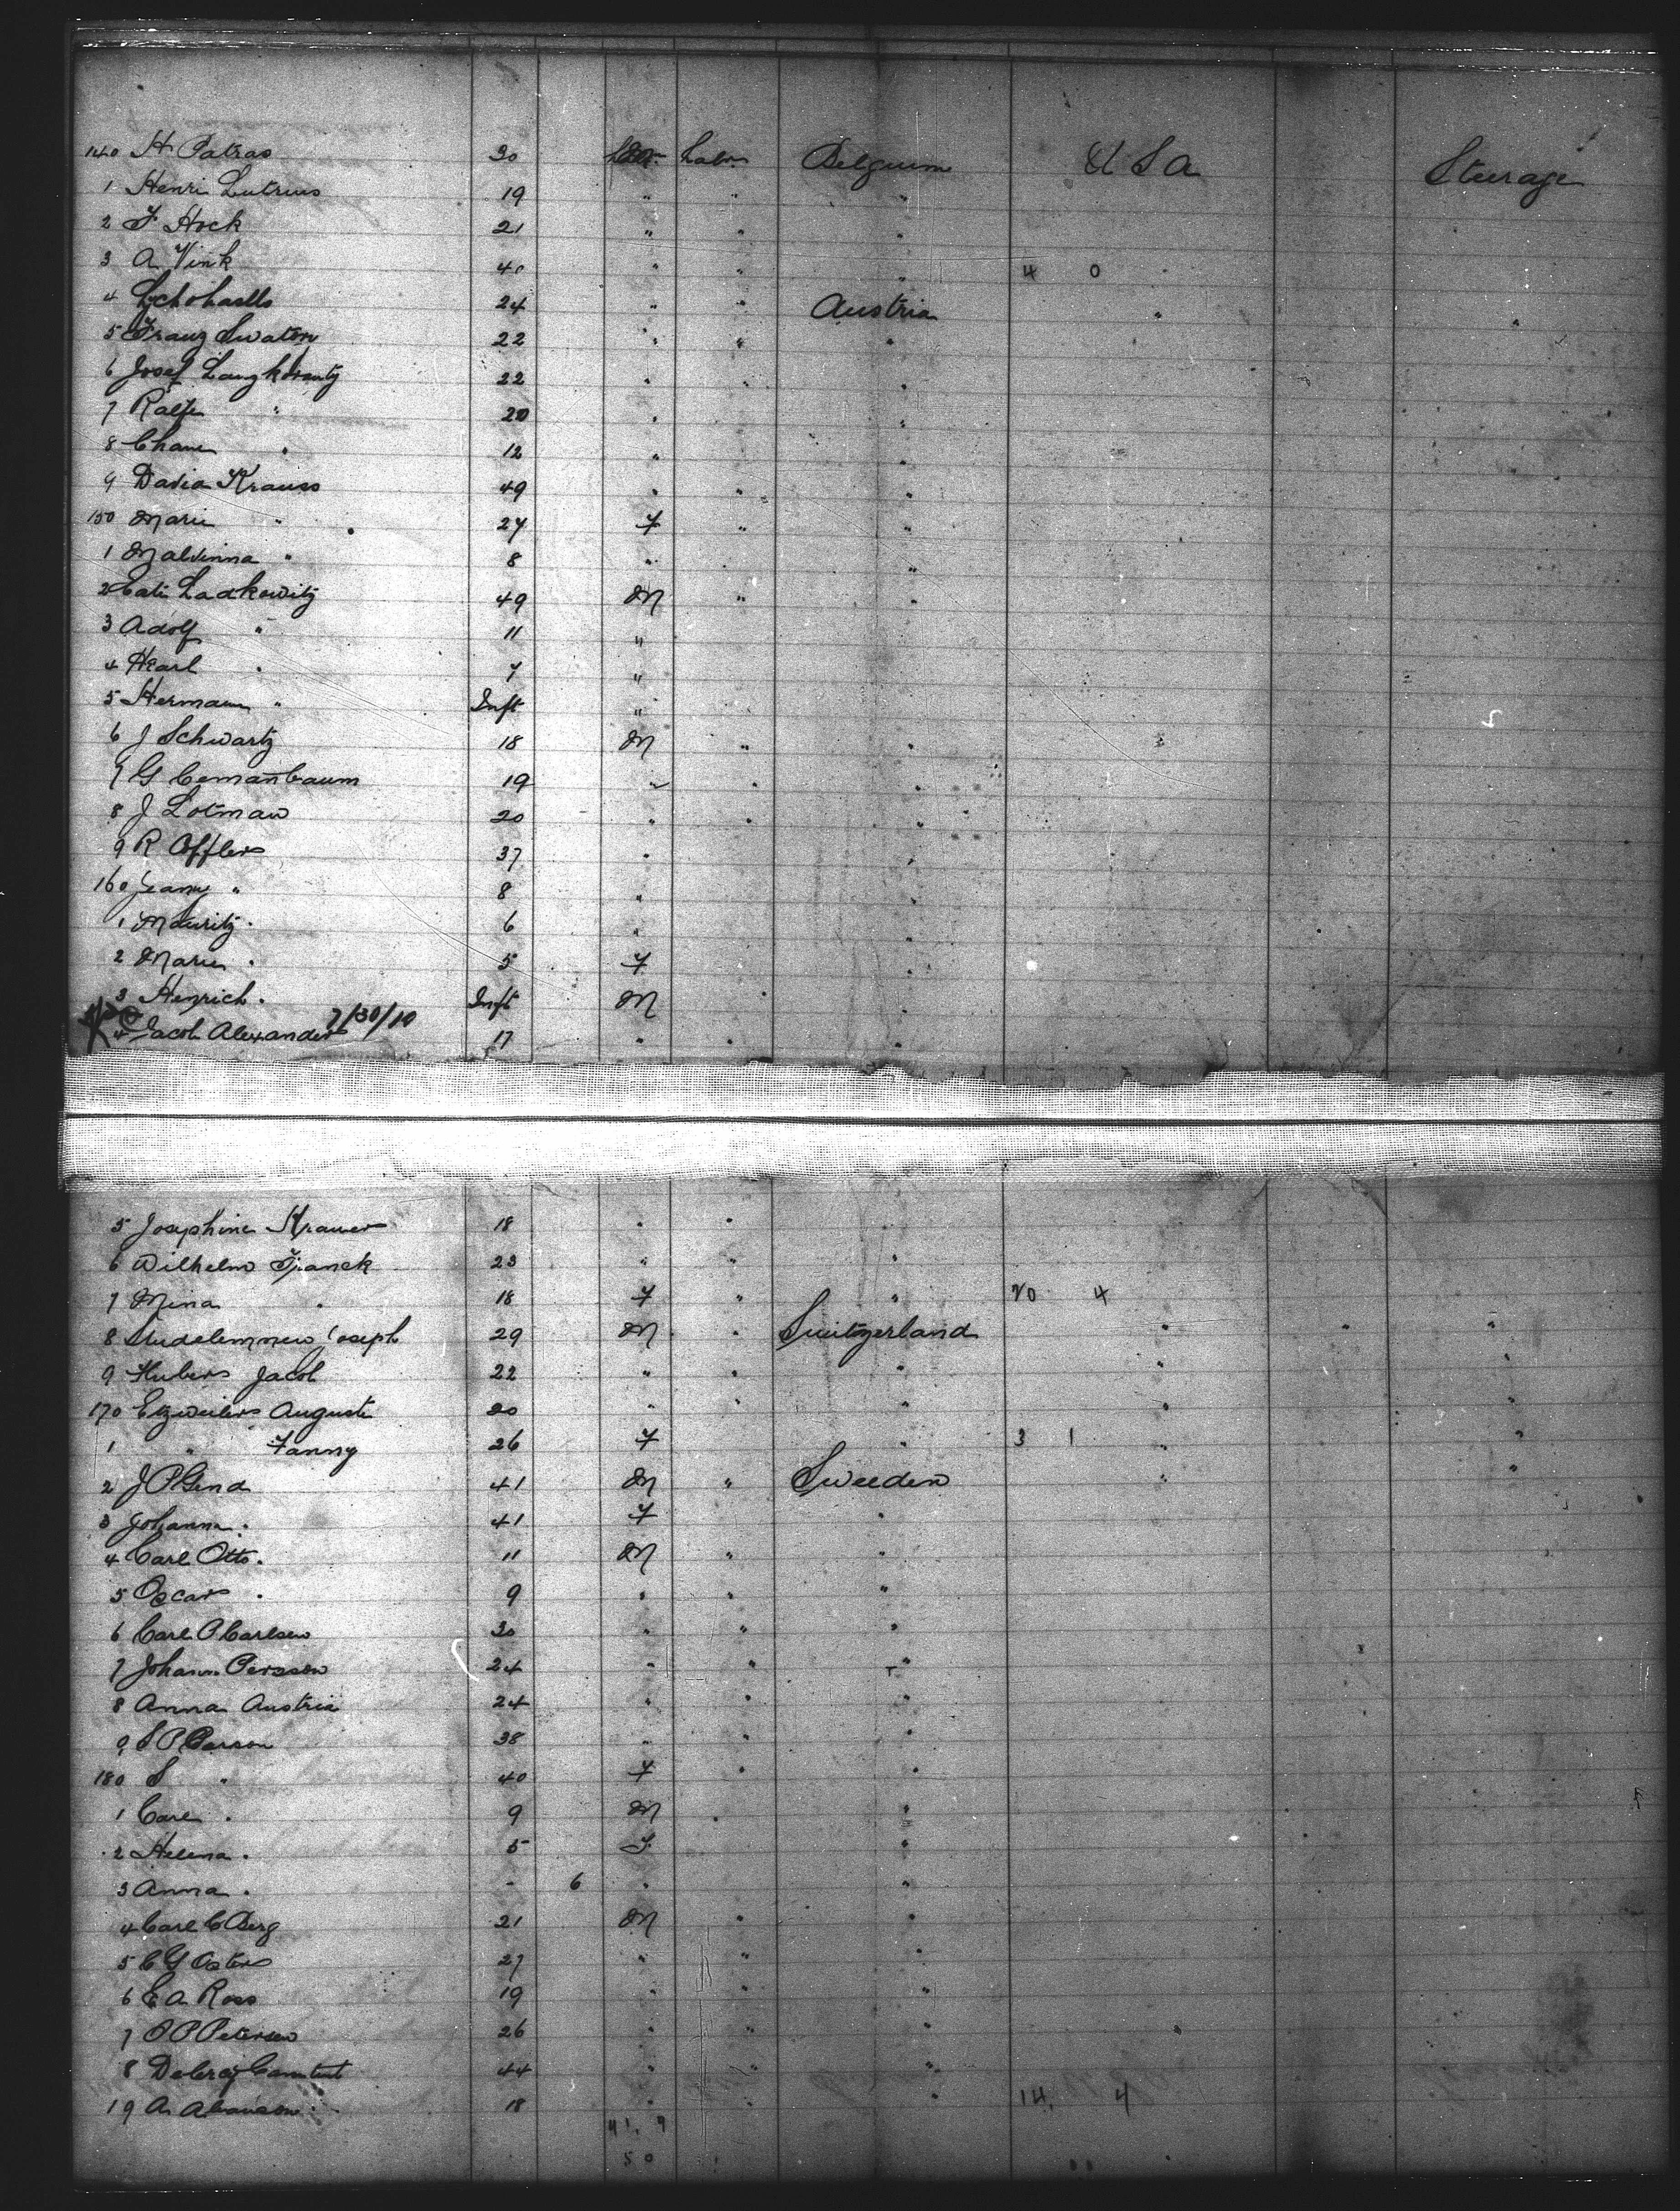 140 H Patras 30 Labr Belgium U S A Steerage
1 Henri Lutrus 19 " " "
2 F Hock 21 " " "
3 A Vink 40 " " " 4 0
4 24 " " Austria " "
5 Franz Swaton 22 " " "
6 Josef 22 " " "
7 Ralfe " 20 " "
8 Chane " 12 " "
9 David Krauss 49 " " "
150 Marie " 27 F " "
1 Malvinna " 8 " "
2 Cati Ladkowitz 49 M " "
3 Adolf " 11 "
4 Karl " 7 "
5 Hermann " Inft "
6 J Schwartz 18 M " "
7 G Cemannbaum 19 " " "
8 J Lotman 20 " " "
9 R Offler 37 " "
160 Jeanu " 8 "
1 Mauritz " 6 " "
2 Marie " 5 F "
3 Henrich " Inft M " "
7/30/10
4 Jacob Alexander 17 " " "
5 Josephine Kramer 18 " "
6 Wilhelm Franck 23 " " "
7 Mina " 18 F " " 20 4
8 Joseph 29 M " Switzerland " " "
9 Huber Jacob 22 " " " " "
170 Etzweiler August 30 " " " " "
1 " Fanny 26 F " 3 1 " "
2 J P Gend 41 M " Sweeden " "
3 Johanna " 41 F "
4 Carl Otto " 11 M " "
5 Oscar " 9 " " "
6 Carl O Carlsen 30 " " "
7 Johann Persson 24 " " "
8 Anna Austria 24 " " "
9 S P Parson 38 " " "
180 S " 40 F " "
1 Carl " 9 M " "
2 Helena " 5 F "
3 Anna " - 6 " "
4 Carl C Berg 21 M " "
5 C G Oster 27 " " "
6 E A Ross 19 " " "
7 O P Petersen 26 " " "
8 44 " " "
19 A 18 " " " 14 4
41. 9
50